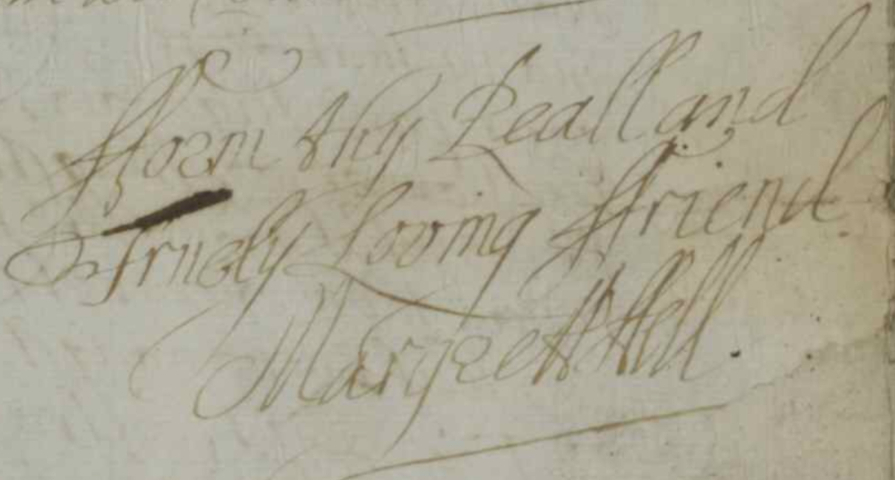 fform thy Reall and
Truely Loving ffriend
Margrett ffell